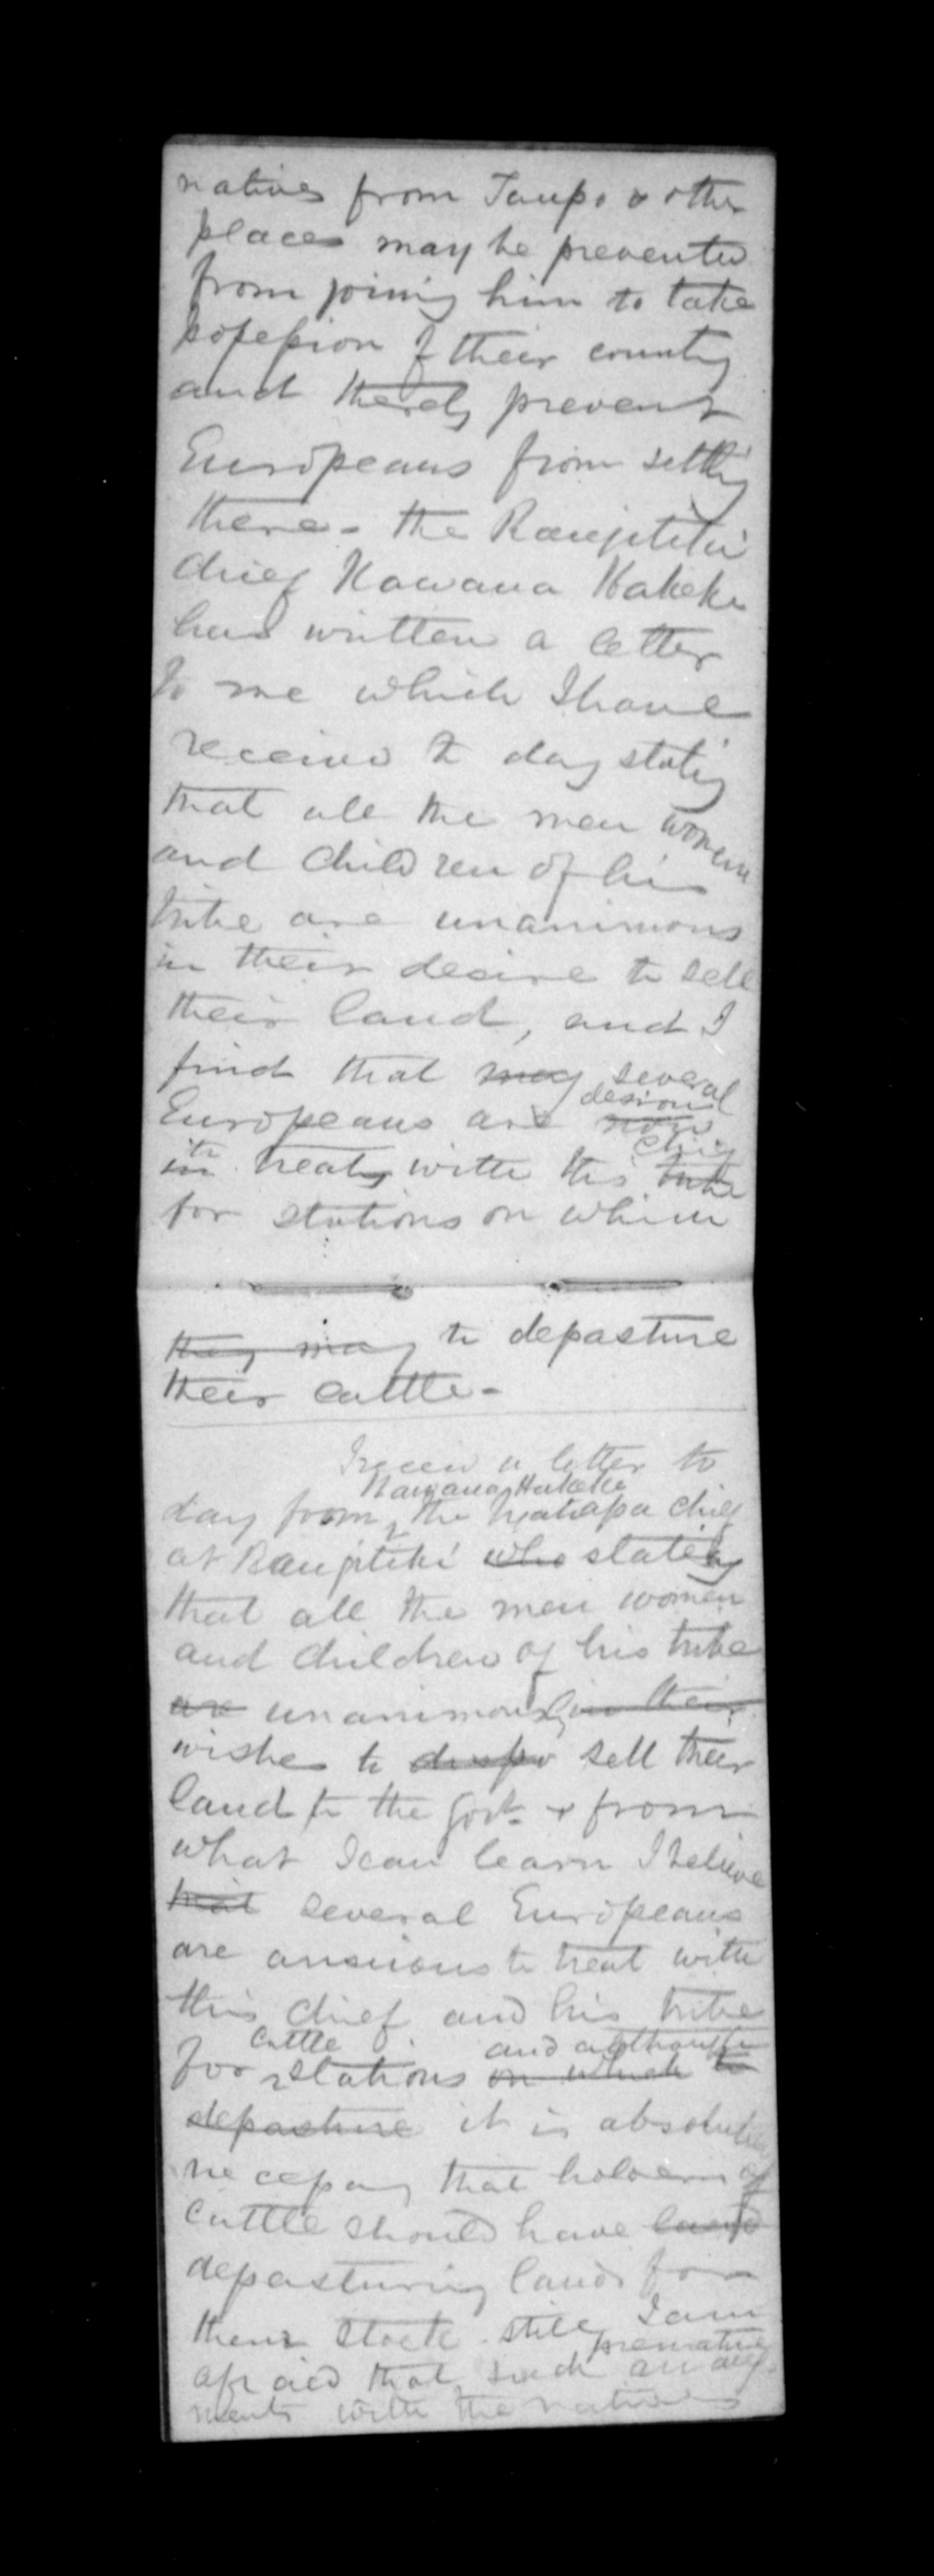 natives from Taupo & other
places may be prevented
from joining him to take
possession of their country
and thereby prevent
Europeans from settling
there - the Rangitikei
chief Kawana Hakeke
has written a letter
to me which I have
received to day stating
that all the men women
and children of his
tribe are unanimous
in their desire to sell
their land, and I
find that may several
desirous
Europeans are now
to chief
in treaty with this tribe
for stations on which
they may to depasture
their cattle -
I received a letter to
Kawana Hakeke
day from the Ngatiapa chief
at Rangitikei who stating
that all the men women
and children of his tribe
are unanimously in their
wishes to dispo sell their
land to the Govt. & from
what I can learn I believe
that several Europeans
are anxious to treat with
this chief and his tribe
cattle and although
for stations on which to
depasture it is absolutely
necessary that holders of
cattle should have land
depasturing lands for
their stock still I am
premature
afraid that such arrange
ments with the natives